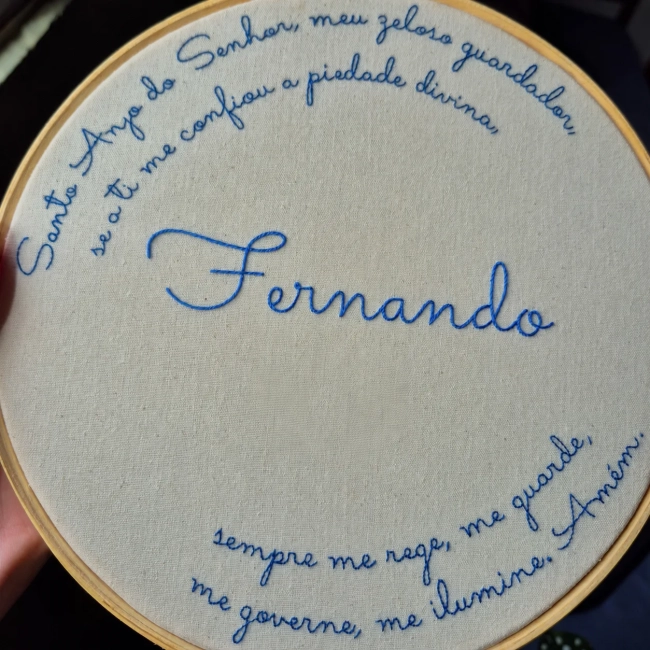 Santo Anjo do Senhor, meu zeloso guardador,
se a ti me confiou a piedade divina,
Fernando
sempre me rege, me guarde,
me governe, me ilumine. Amém.